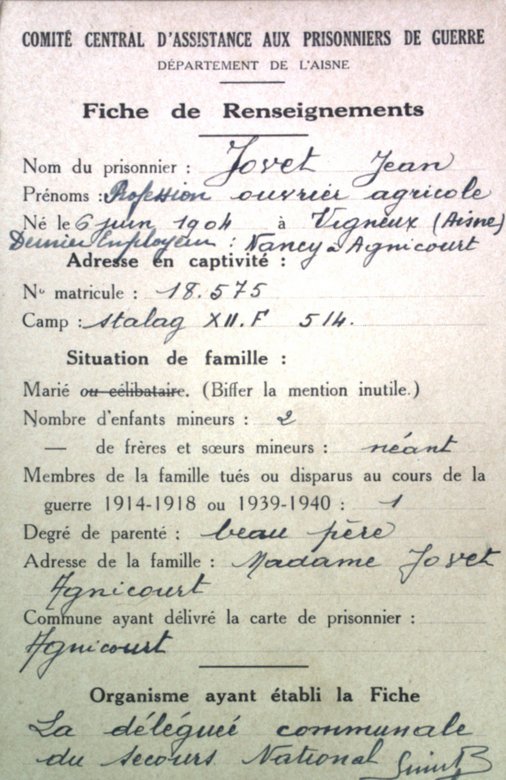 COMITÉ CENTRAL D'ASSISTANCE AUX PRISONNIERS DE GUERRE
DÉPARTEMENT DE L'AISNE
Fiche de Renseignements
Nom du prisonnier : Jovet Jean
Prénoms : Profession ouvrier agricole
Né le 6 juin 1904 à Vigneux (Aisne)
Dernier Employeur : Nancy à Agnicourt
Adresse en captivité :
No matricule : 18.575
Camp : Stalag XII.F 514.
Situation de famille :
Marié ou célibataire. (Biffer la mention inutile.)
Nombre d'enfants mineurs : 2
— de frères et sœurs mineurs : néant
Membres de la famille tués ou disparus au cours de la
guerre 1914-1918 ou 1939-1940 : 1
Degré de parenté : beau père
Adresse de la famille : Madame Jovet
Agnicourt
Commune ayant délivré la carte de prisonnier :
Agnicourt
Organisme ayant établi la Fiche
La déléguée communale
du secours National